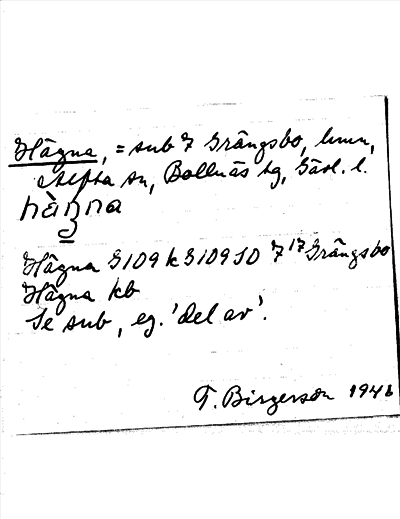 Hägna, = sub 7 Grängsbo, hmn,
Alfta sn, Bollnäs tg, Gävl. l.
hàŋna
Hägna G109 k G109 SO 7 17 Grängsbo
Hägna kb
Se sub, eg. 'del av'.
T. Birgerson 1946